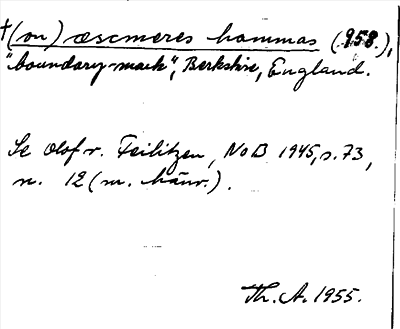 †(on) æscmeres hammas (958),
"boundary-mark", Berkshire, England.
Se Olof v. Feilitzen, NoB 1945, s. 73,
n. 12 (m. hänv.).
Th. A. 1955.